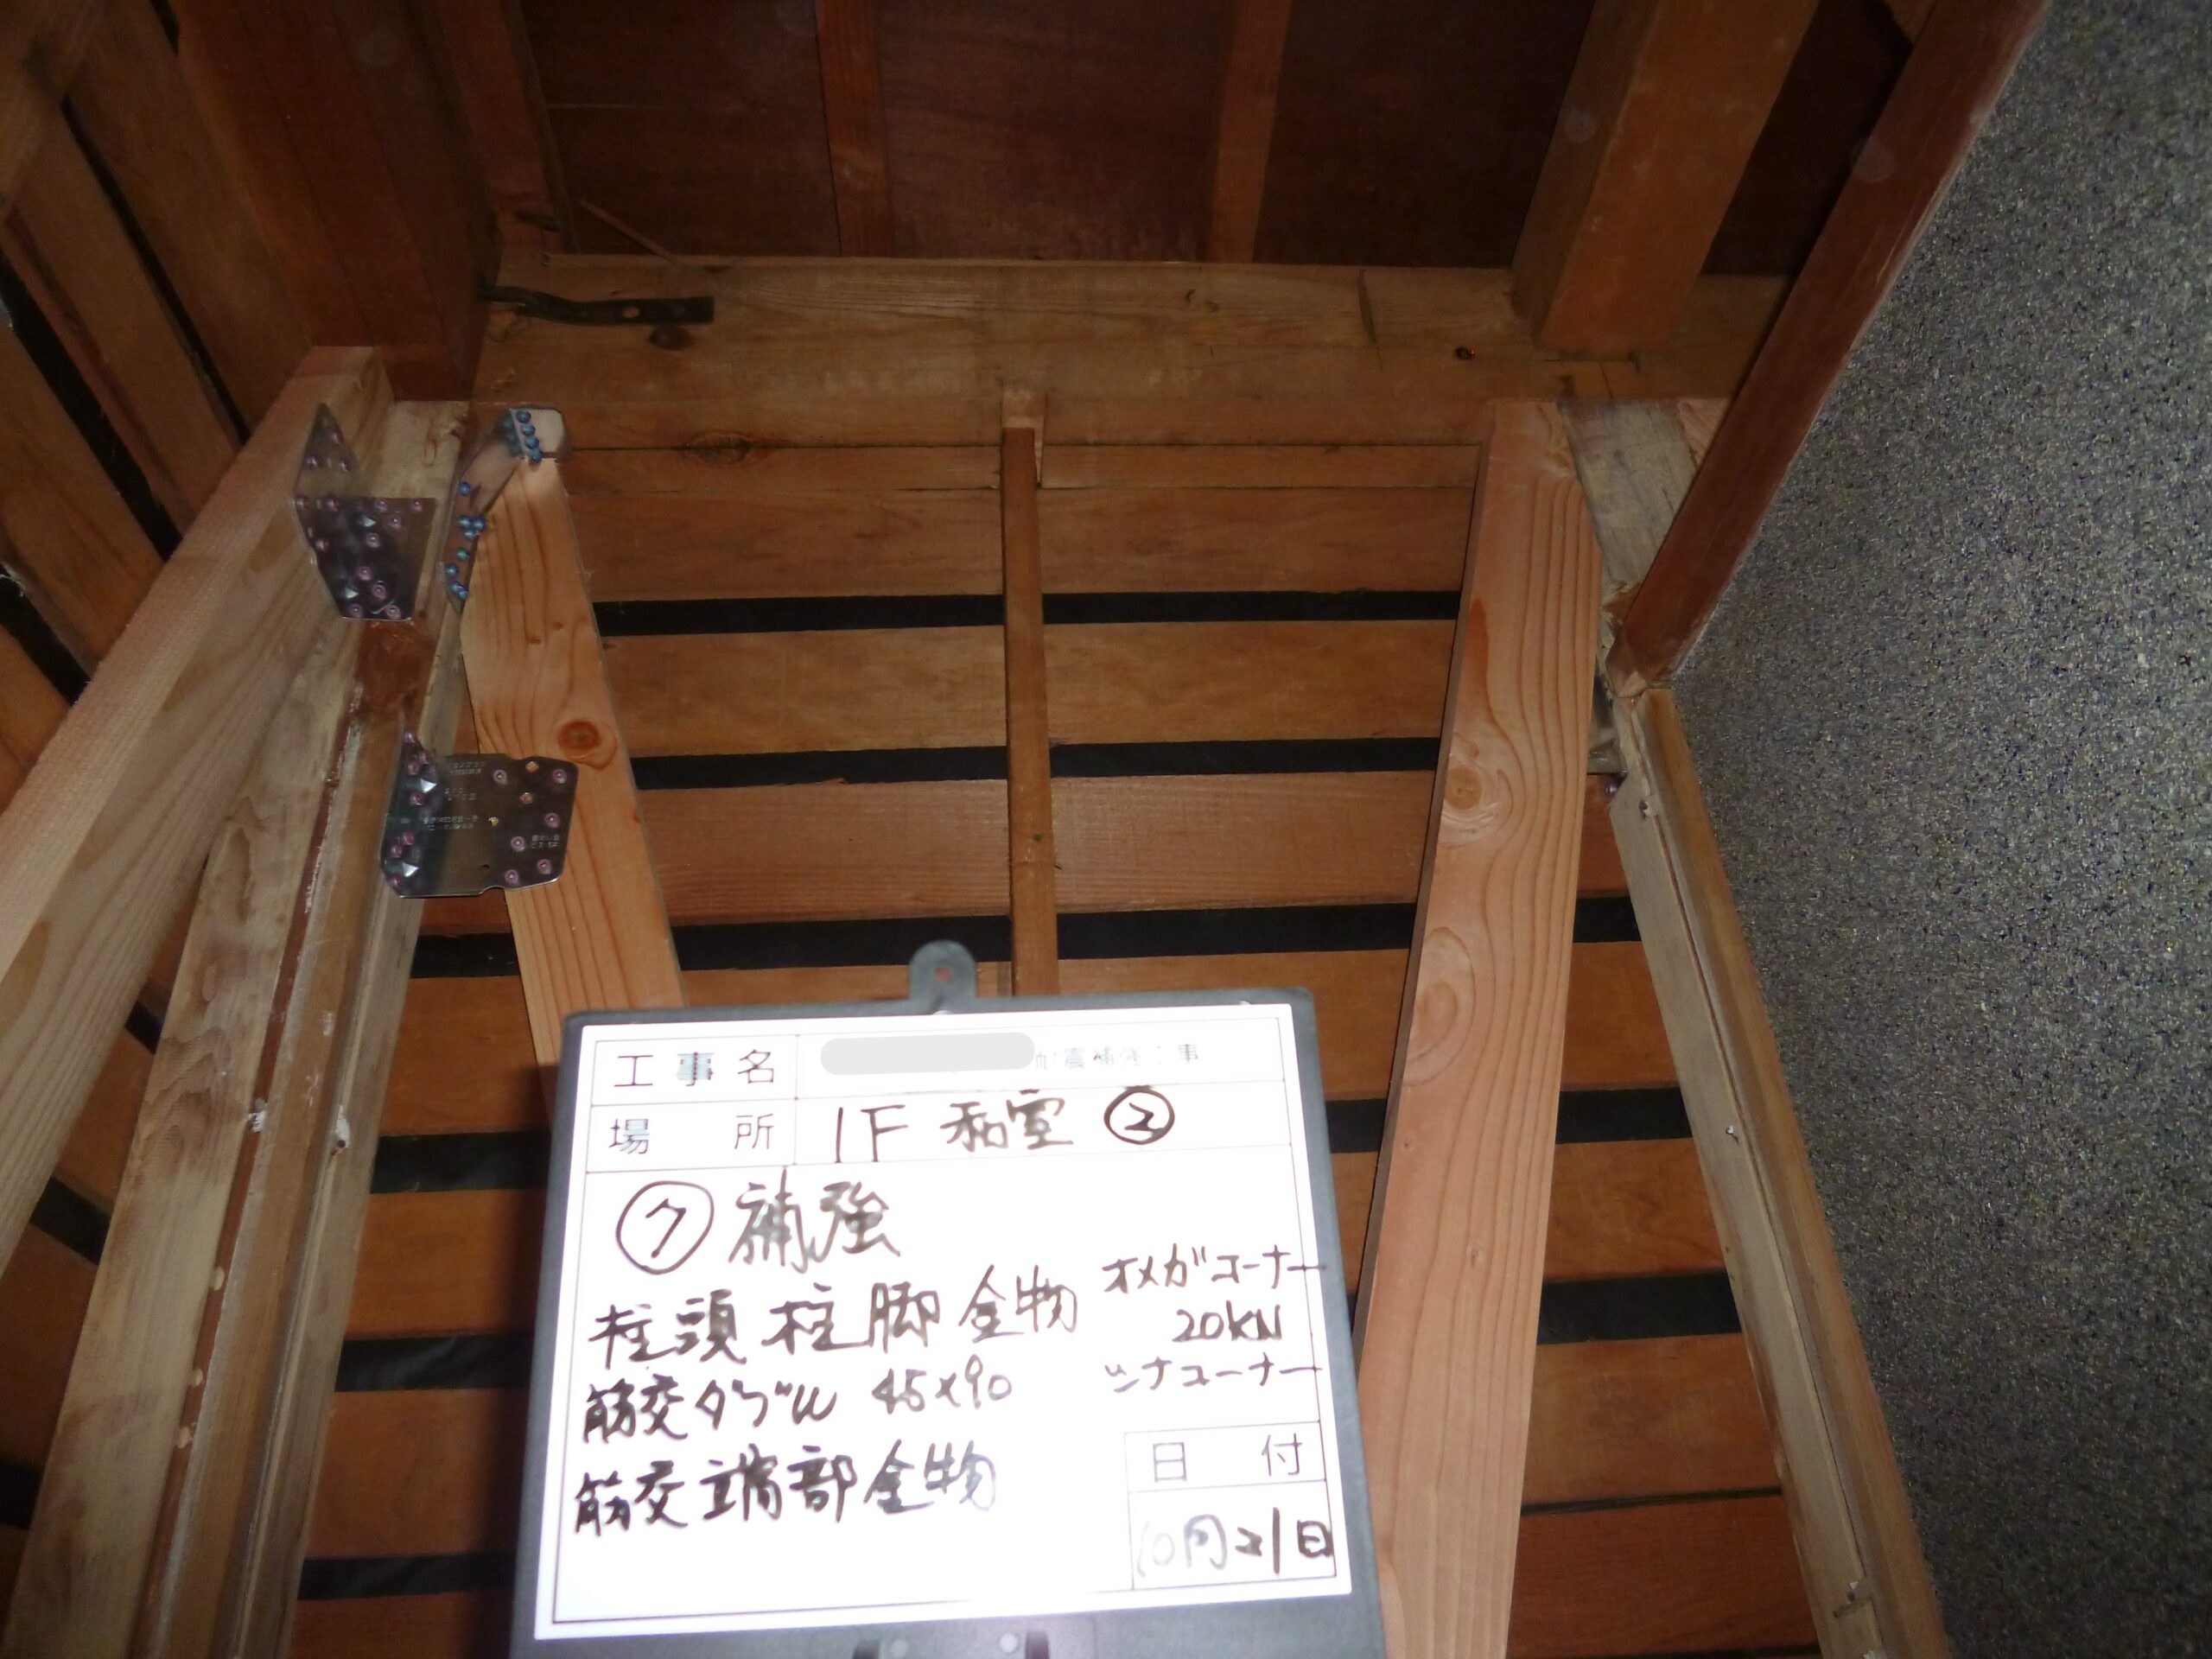 工事名 耐震補強工事
場所 1F 和室 ②
㋗ 補強
柱頭柱脚金物 オメガコーナー
20kN
筋交ダブル 45×90 シナコーナー
筋交端部金物
日付
10月21日